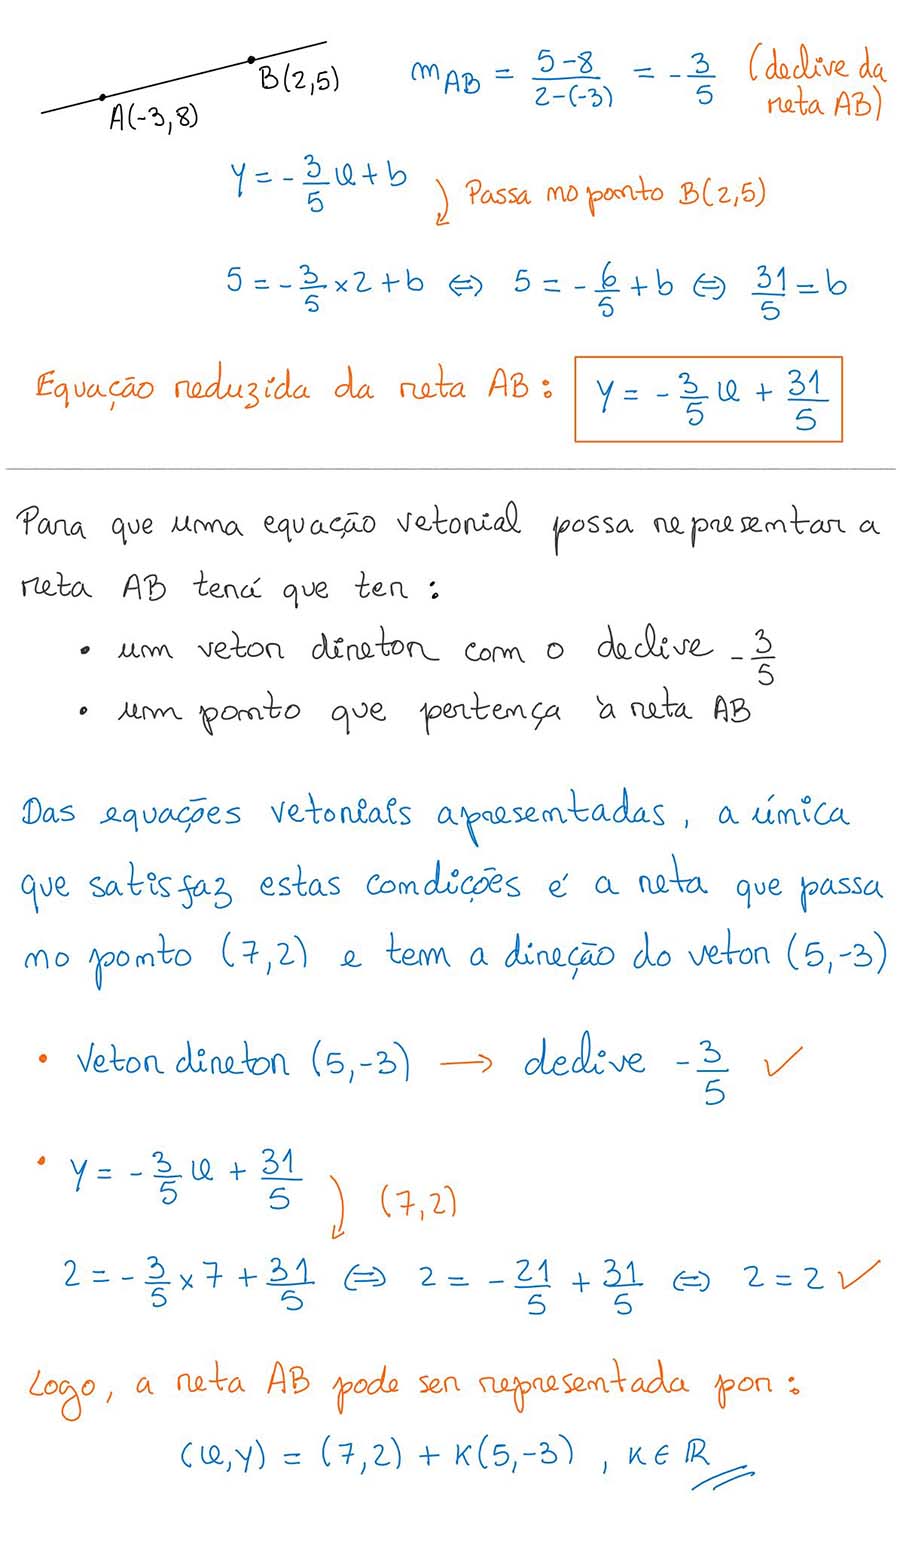 A(-3,8) B(2,5) m_AB = (5-8)/(2-(-3)) = -3/5 (declive da reta AB)
y = -3/5 x + b Passa no ponto B(2,5)
5 = -3/5 × 2 + b ⇔ 5 = -6/5 + b ⇔ 31/5 = b
Equação reduzida da reta AB: y = -3/5 x + 31/5
Para que uma equação vetorial possa representar a
reta AB terá que ter:
• um vetor diretor com o declive -3/5
• um ponto que pertença à reta AB
Das equações vetoriais apresentadas, a única
que satisfaz estas condições é a reta que passa
no ponto (7,2) e tem a direção do vetor (5,-3)
• Vetor diretor (5,-3) → declive -3/5 ✓
• y = -3/5 x + 31/5 (7,2)
2 = -3/5 × 7 + 31/5 ⇔ 2 = -21/5 + 31/5 ⇔ 2 = 2 ✓
Logo, a reta AB pode ser representada por:
(x,y) = (7,2) + k(5,-3) , k ∈ ℝ